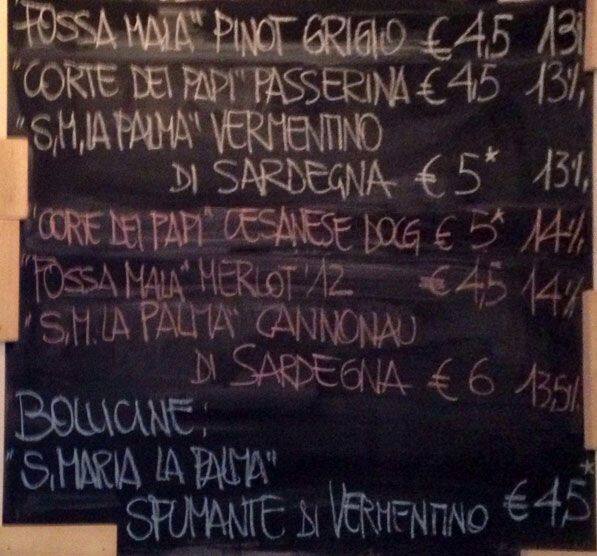 "FOSSA MALA" PINOT GRIGIO € 4,5 13%
"CORTE DEI PAPI" PASSERINA € 4,5 13%
"S.M. LA PALMA" VERMENTINO
DI SARDEGNA € 5* 13%
"CORTE DEI PAPI" CESANESE DOCG € 5* 14%
"FOSSA MALA" MERLOT '12 € 4,5 14%
"S.M. LA PALMA" CANNONAU
DI SARDEGNA € 6 13,5%
BOLLICINE:
"S. MARIA LA PALMA"
SPUMANTE DI VERMENTINO € 4,5*